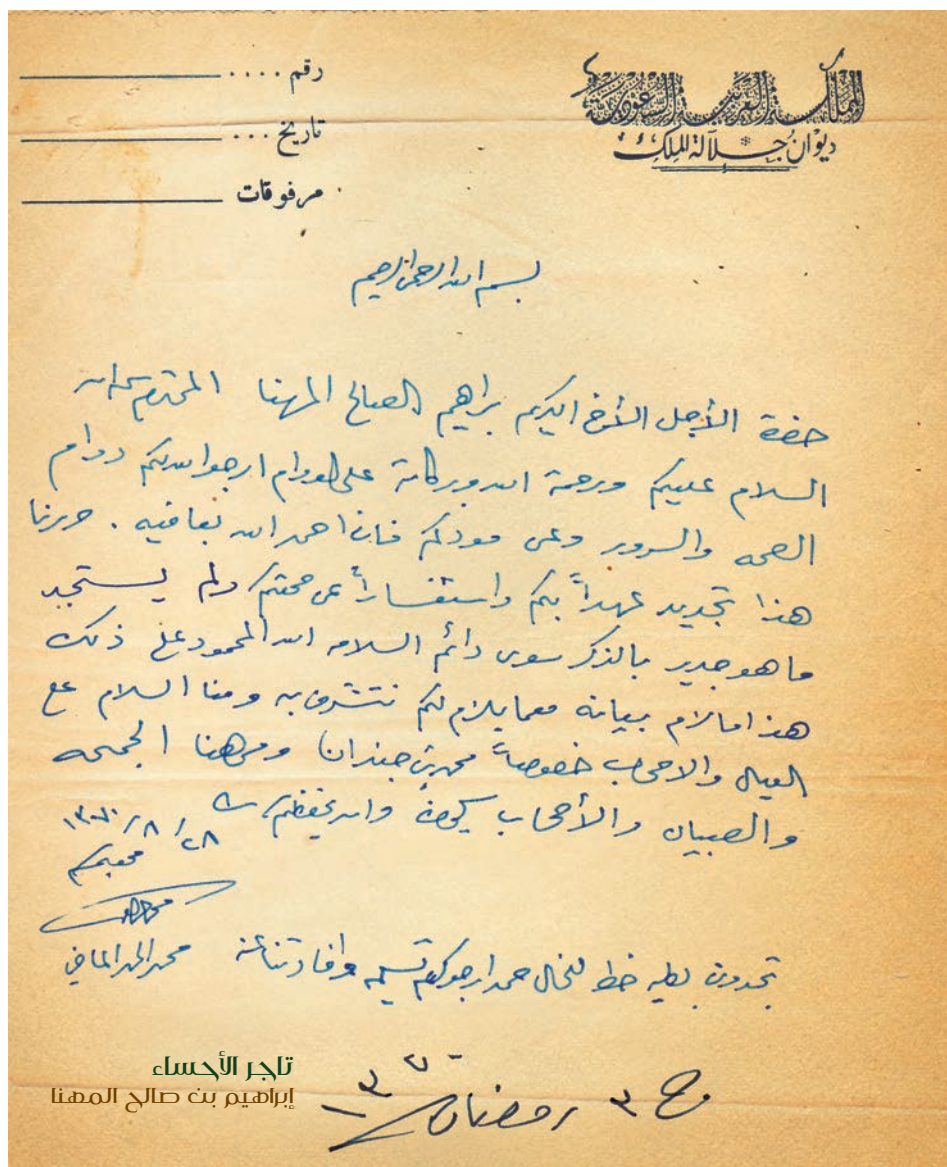 المملكة العربية السعودية
ديوان جلالة الملك
رقم ....
تاريخ ...
مرفوقات
بسم الله الرحمن الرحيم
حضرة الأجل الأخ الكريم براهيم الصالح المهنا المحترم
السلام عليكم ورحمة الله وبركاته على الدوام ارجو الله لكم دوام
الصحه والسرور وعن مودكم فاننا احمد الله بعافيه . حررنا
هذا تجديد عهداً بكم واستفساراً عن صحتكم ولم يستجد
ما هو جدير بالذكر سوى دائم السلامه الله المحمود على ذلك
هذا مالازم بيانه مع مايلازم لكم نتشرف به ومنا السلام على
العيال والاصحاب خصوصاً محمد بن جندان ومن هنا الجميع
والصبيان والأصحاب والله يحفظكم
٢٨/٨/
محبكم
محمد الحمد الماضي
تجدون بطيه خط للخال حمد ارجوكم تسليمه وافادتنا عنه
٣ رمضان
تاجر الأحساء
إبراهيم بن صالح المهنا